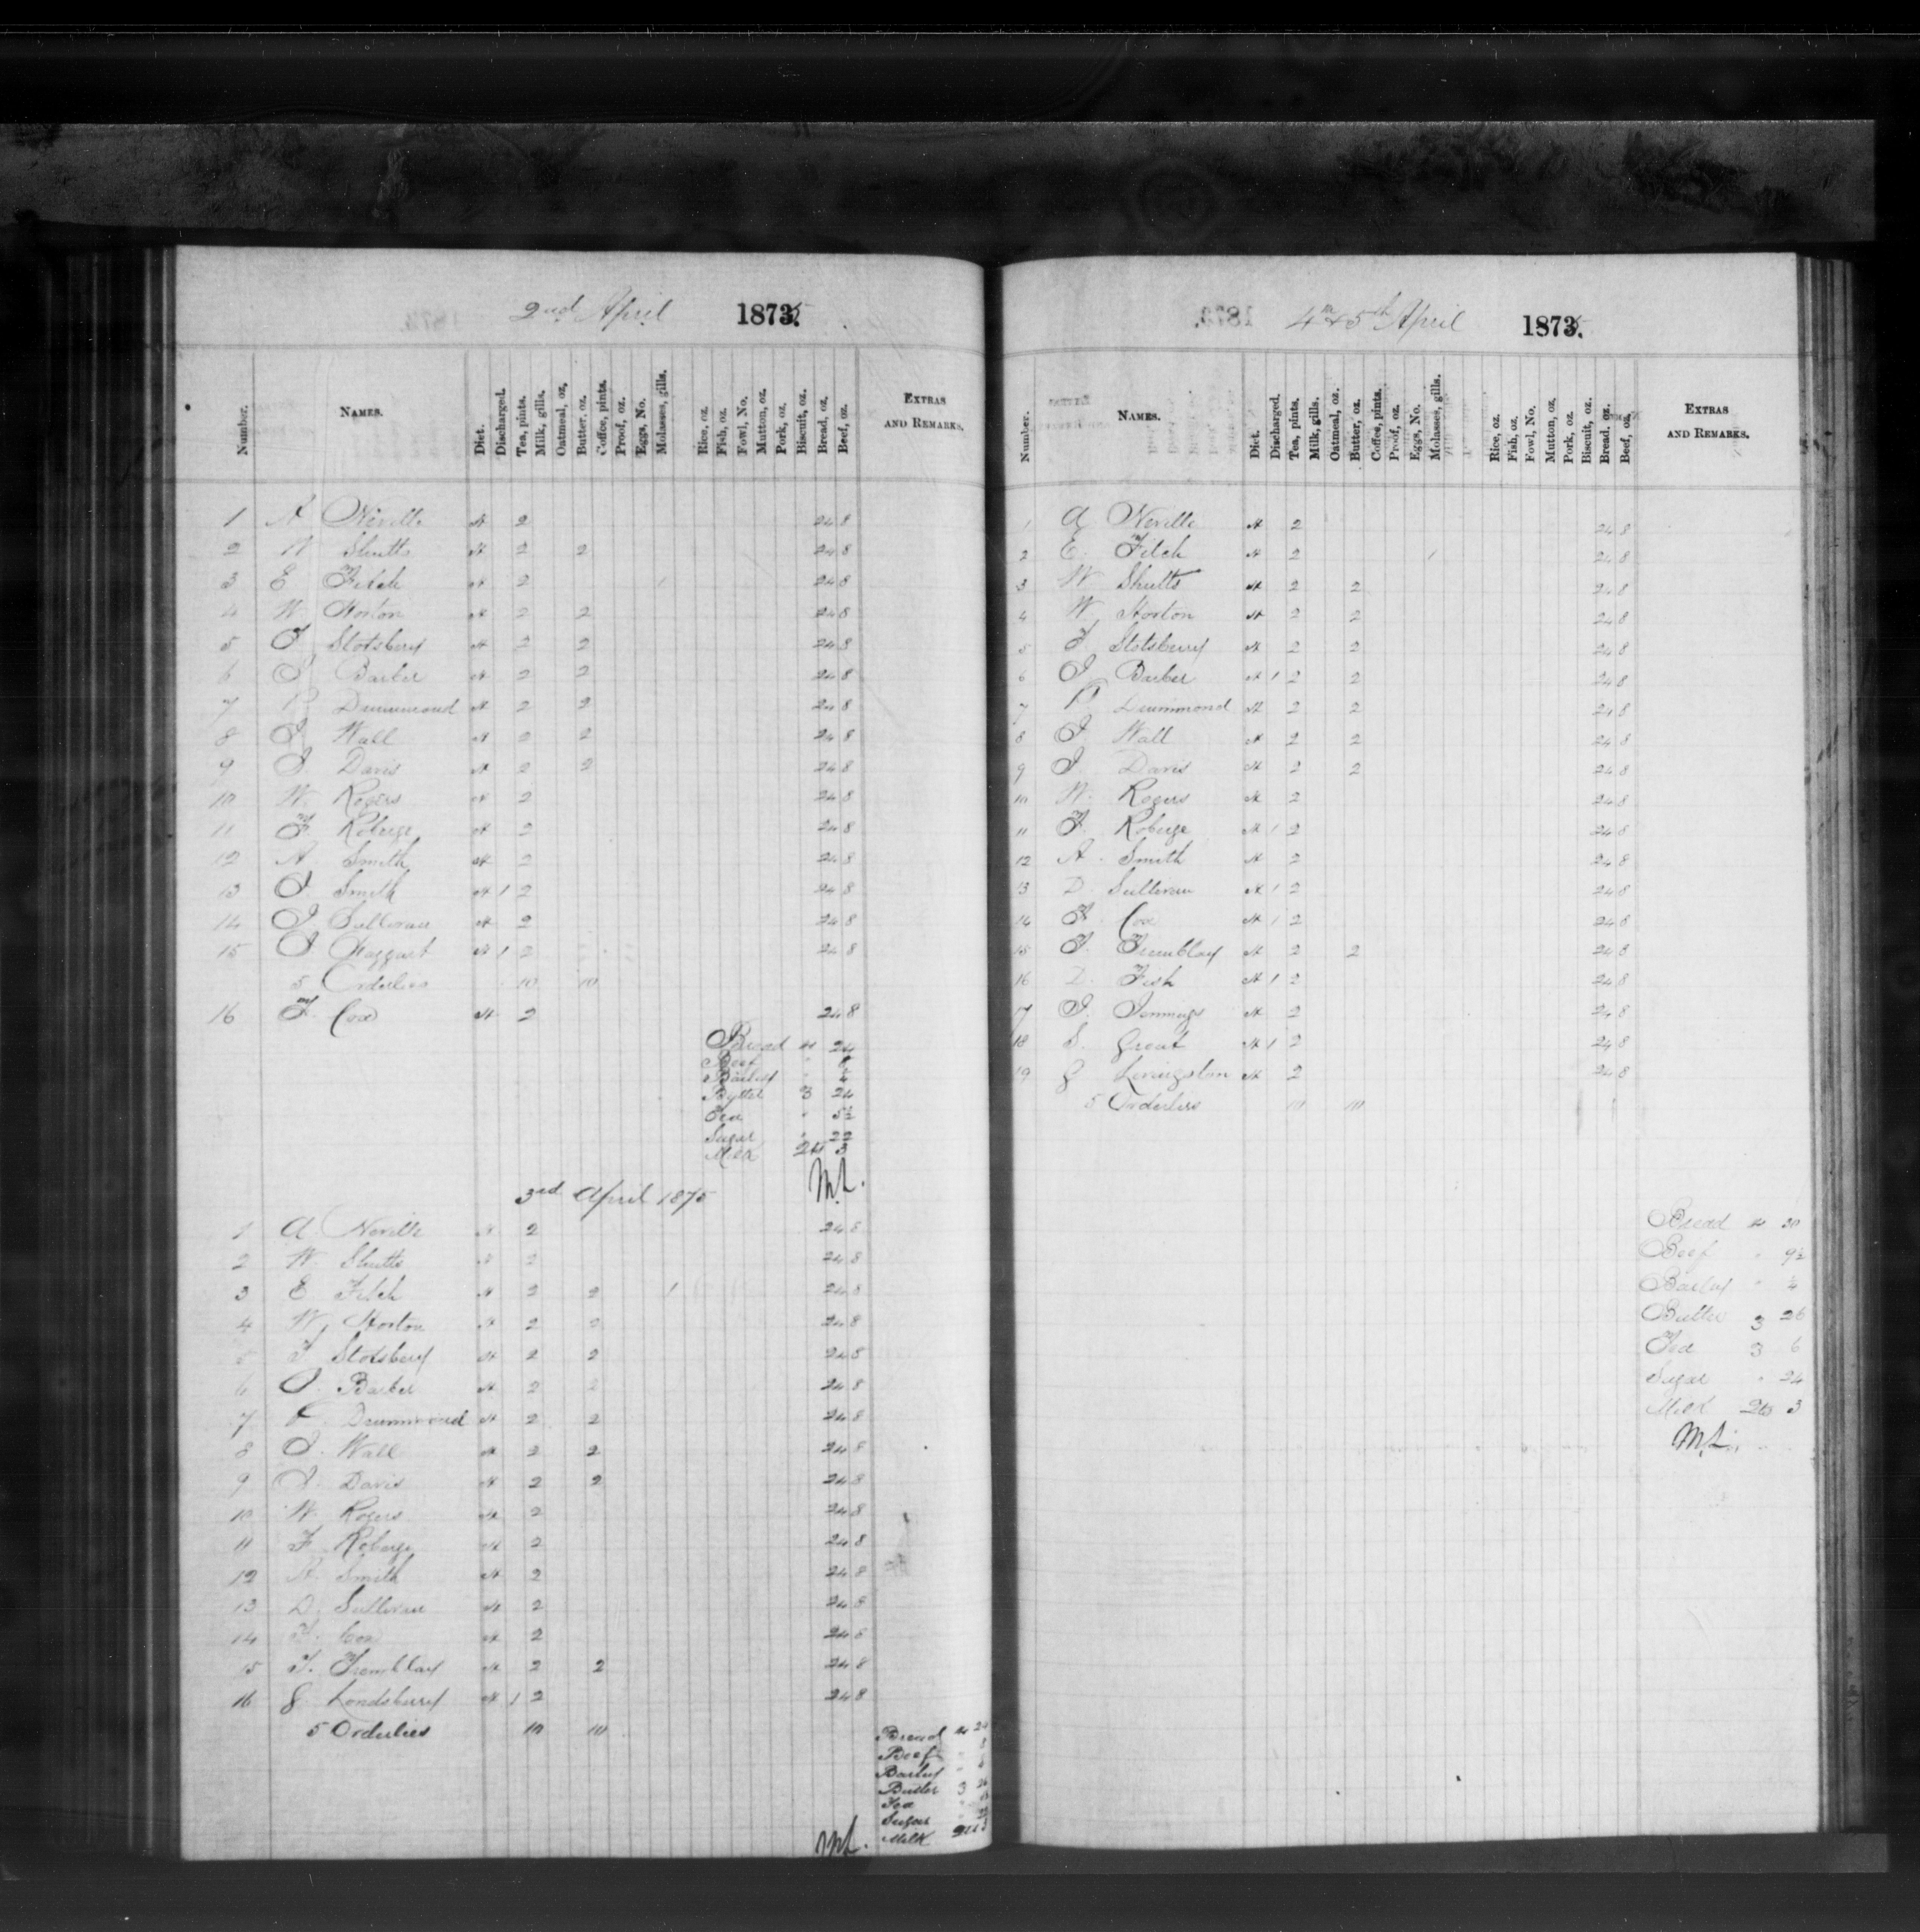 2nd April 1875.
Number. NAMES. Diet. Discharged. Tea, pints. Milk, gills. Oatmeal, oz. Butter, oz. Coffee, pints. Proof, oz. Eggs, No. Molasses, gills. Rice, oz. Fish, oz. Fowl, No. Mutton, oz. Pork, oz. Biscuit, oz. Bread, oz. Beef, oz. EXTRAS AND REMARKS.
1 A Neville H 2 24 8
2 W Shutts H 2 2 24 8
3 E Fitch H 2 1 24 8
4 W Horton H 2 2 24 8
5 T Stotsbery H 2 2 24 8
6 J Barber H 2 2 24 8
7 P Drummond H 2 2 24 8
8 J Wall H 2 2 24 8
9 J Davis H 2 2 24 8
10 W. Rogers H 2 24 8
11 F. Roberge H 2 24 8
12 A. Smith H 2 24 8
13 J Smith H 1 2 24 8
14 J Sullivan H 2 24 8
15 J Haggart H 1 2 24 8
5 Orderlies 10 10
16 F. Cox H 2 24 8
Bread 24
Beef " 8
Barley "
Butter 3 24
Tea " 5½
Sugar " 22
Milk 2 3
M.L.
3rd April 1875
1 A Neville H 2 24 8
2 W. Shutts H 2 24 8
3 E Fitch H 2 2 1 24 8
4 W. Horton H 2 2 24 8
5 T Stotsbery H 2 2 24 8
6 J. Barber H 2 2 24 8
7 P. Drummond H 2 2 24 8
8 J. Wall H 2 2 24 8
9 J. Davis H 2 2 24 8
10 W. Rogers H 2 24 8
11 F. Roberge H 2 24 8
12 A. Smith H 2 24 8
13 D. Sullivan H 2 24 8
14 F. Cox H 2 24 8
15 T. Tremblay H 2 2 24 8
16 G. Londsberry H 1 2 24 8
5 Orderlies 10 10
Bread
Beef
Barley
Butter 3 26
Tea
Sugar
Milk
M.L.
4th & 5th April 1875.
Number. NAMES. Diet. Discharged. Tea, pints. Milk, gills. Oatmeal, oz. Butter, oz. Coffee, pints. Proof, oz. Eggs, No. Molasses, gills. Rice, oz. Fish, oz. Fowl, No. Mutton, oz. Pork, oz. Biscuit, oz. Bread, oz. Beef, oz. EXTRAS AND REMARKS.
1 A Neville H 2 24 8
2 E. Fitch H 2 1 24 8
3 W Shutts H 2 2 24 8
4 W. Horton H 2 2 24 8
5 T. Stotsbery H 2 2 24 8
6 J Barber H 1 2 2 24 8
7 P Drummond H 2 2 24 8
8 J Wall H 2 2 24 8
9 J. Davis H 2 2 24 8
10 W. Rogers H 2 24 8
11 F. Roberge H 1 2 24 8
12 A. Smith H 2 24 8
13 D. Sullivan H 1 2 24 8
14 F. Cox H 1 2 24 8
15 T. Tremblay H 2 2 24 8
16 D. Fish H 1 2 24 8
17 J. Jennings H 2 24 8
18 S. Great H 1 2 24 8
19 G Livingston H 2 24 8
5 Orderlies 10 10
Bread
Beef " 9½
Barley " 4
Butter 3 26
Tea 3 6
Sugar " 24
Milk 3
M.L.